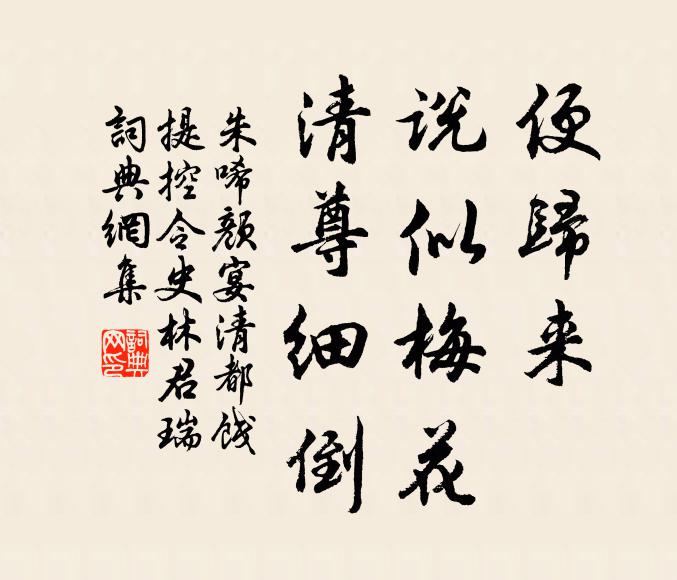 便歸来
說似梅花
清尊細倒
朱晞顏宴清都餞
提控令史林君瑞
詞典網集
詞典网印